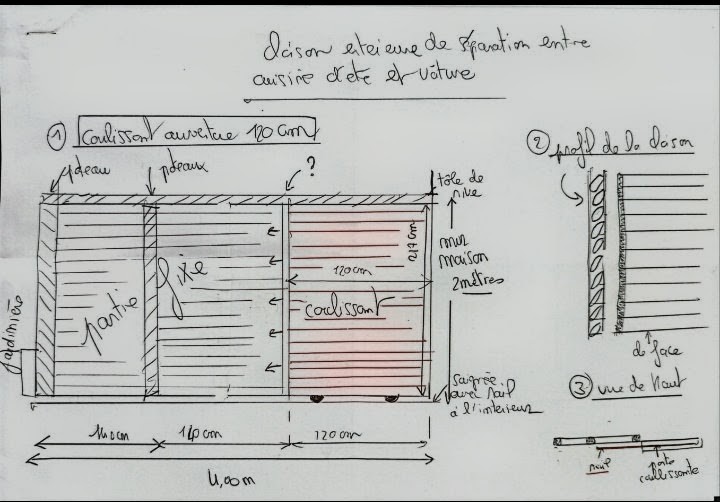 cloison extérieure de séparation entre
cuisine d'été et voiture
① Coulissant ouverture 120 cm
② profil de la cloison
poteau
poteaux
?
tôle de rive
217 cm
mur
maison
2 mètres
120 cm
coulissant
partie
fixe
Jardinière
de face
saignée
avec rail
à l'intérieur
③ vue de haut
140 cm
140 cm
120 cm
4,00 m
rail
porte
coulissante